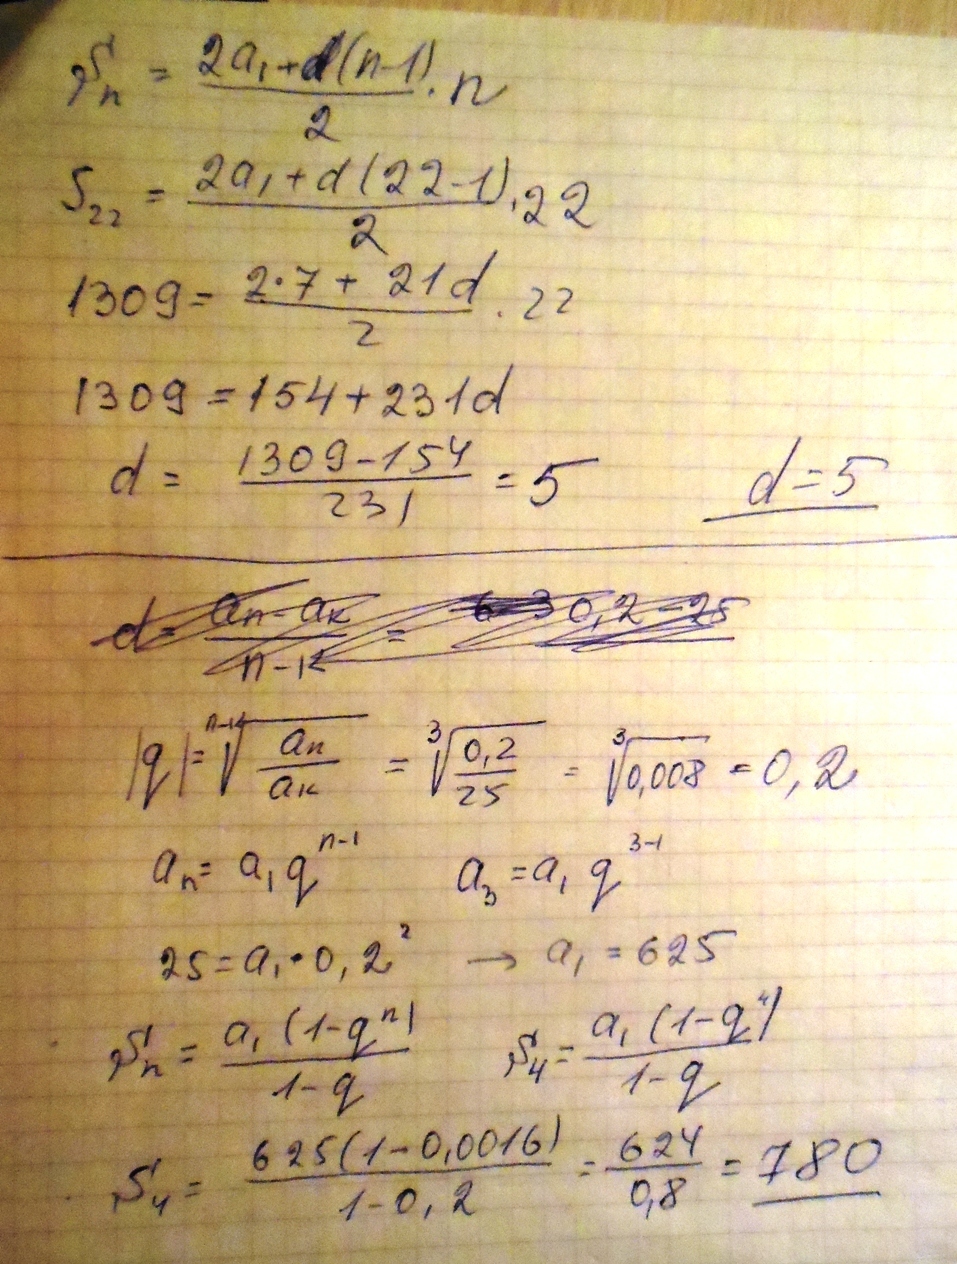 Sₙ = (2a₁+d(n-1))/2 · n
S₂₂ = (2a₁+d(22-1))/2 · 22
1309 = (2·7 + 21d)/2 · 22
1309 = 154 + 231d
d = (1309-154)/231 = 5    d = 5
d = (aₙ-aₖ)/(n-k) = 0,2-25
|q| = ⁿ⁻ᵏ√(aₙ/aₖ) = ³√(0,2/25) = ³√0,008 = 0,2
aₙ = a₁qⁿ⁻¹    a₃ = a₁q³⁻¹
25 = a₁·0,2² → a₁ = 625
Sₙ = a₁(1-qⁿ)/(1-q)    S₄ = a₁(1-q⁴)/(1-q)
S₄ = 625(1-0,0016)/(1-0,2) = 624/0,8 = 780